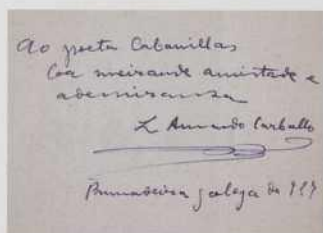 Ao poeta Cabanillas
Coa meirande amistade e
ademiranza
L Amando Carballo
Primadeira galega do